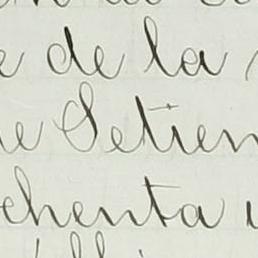 e de la
e Setiem
chenta